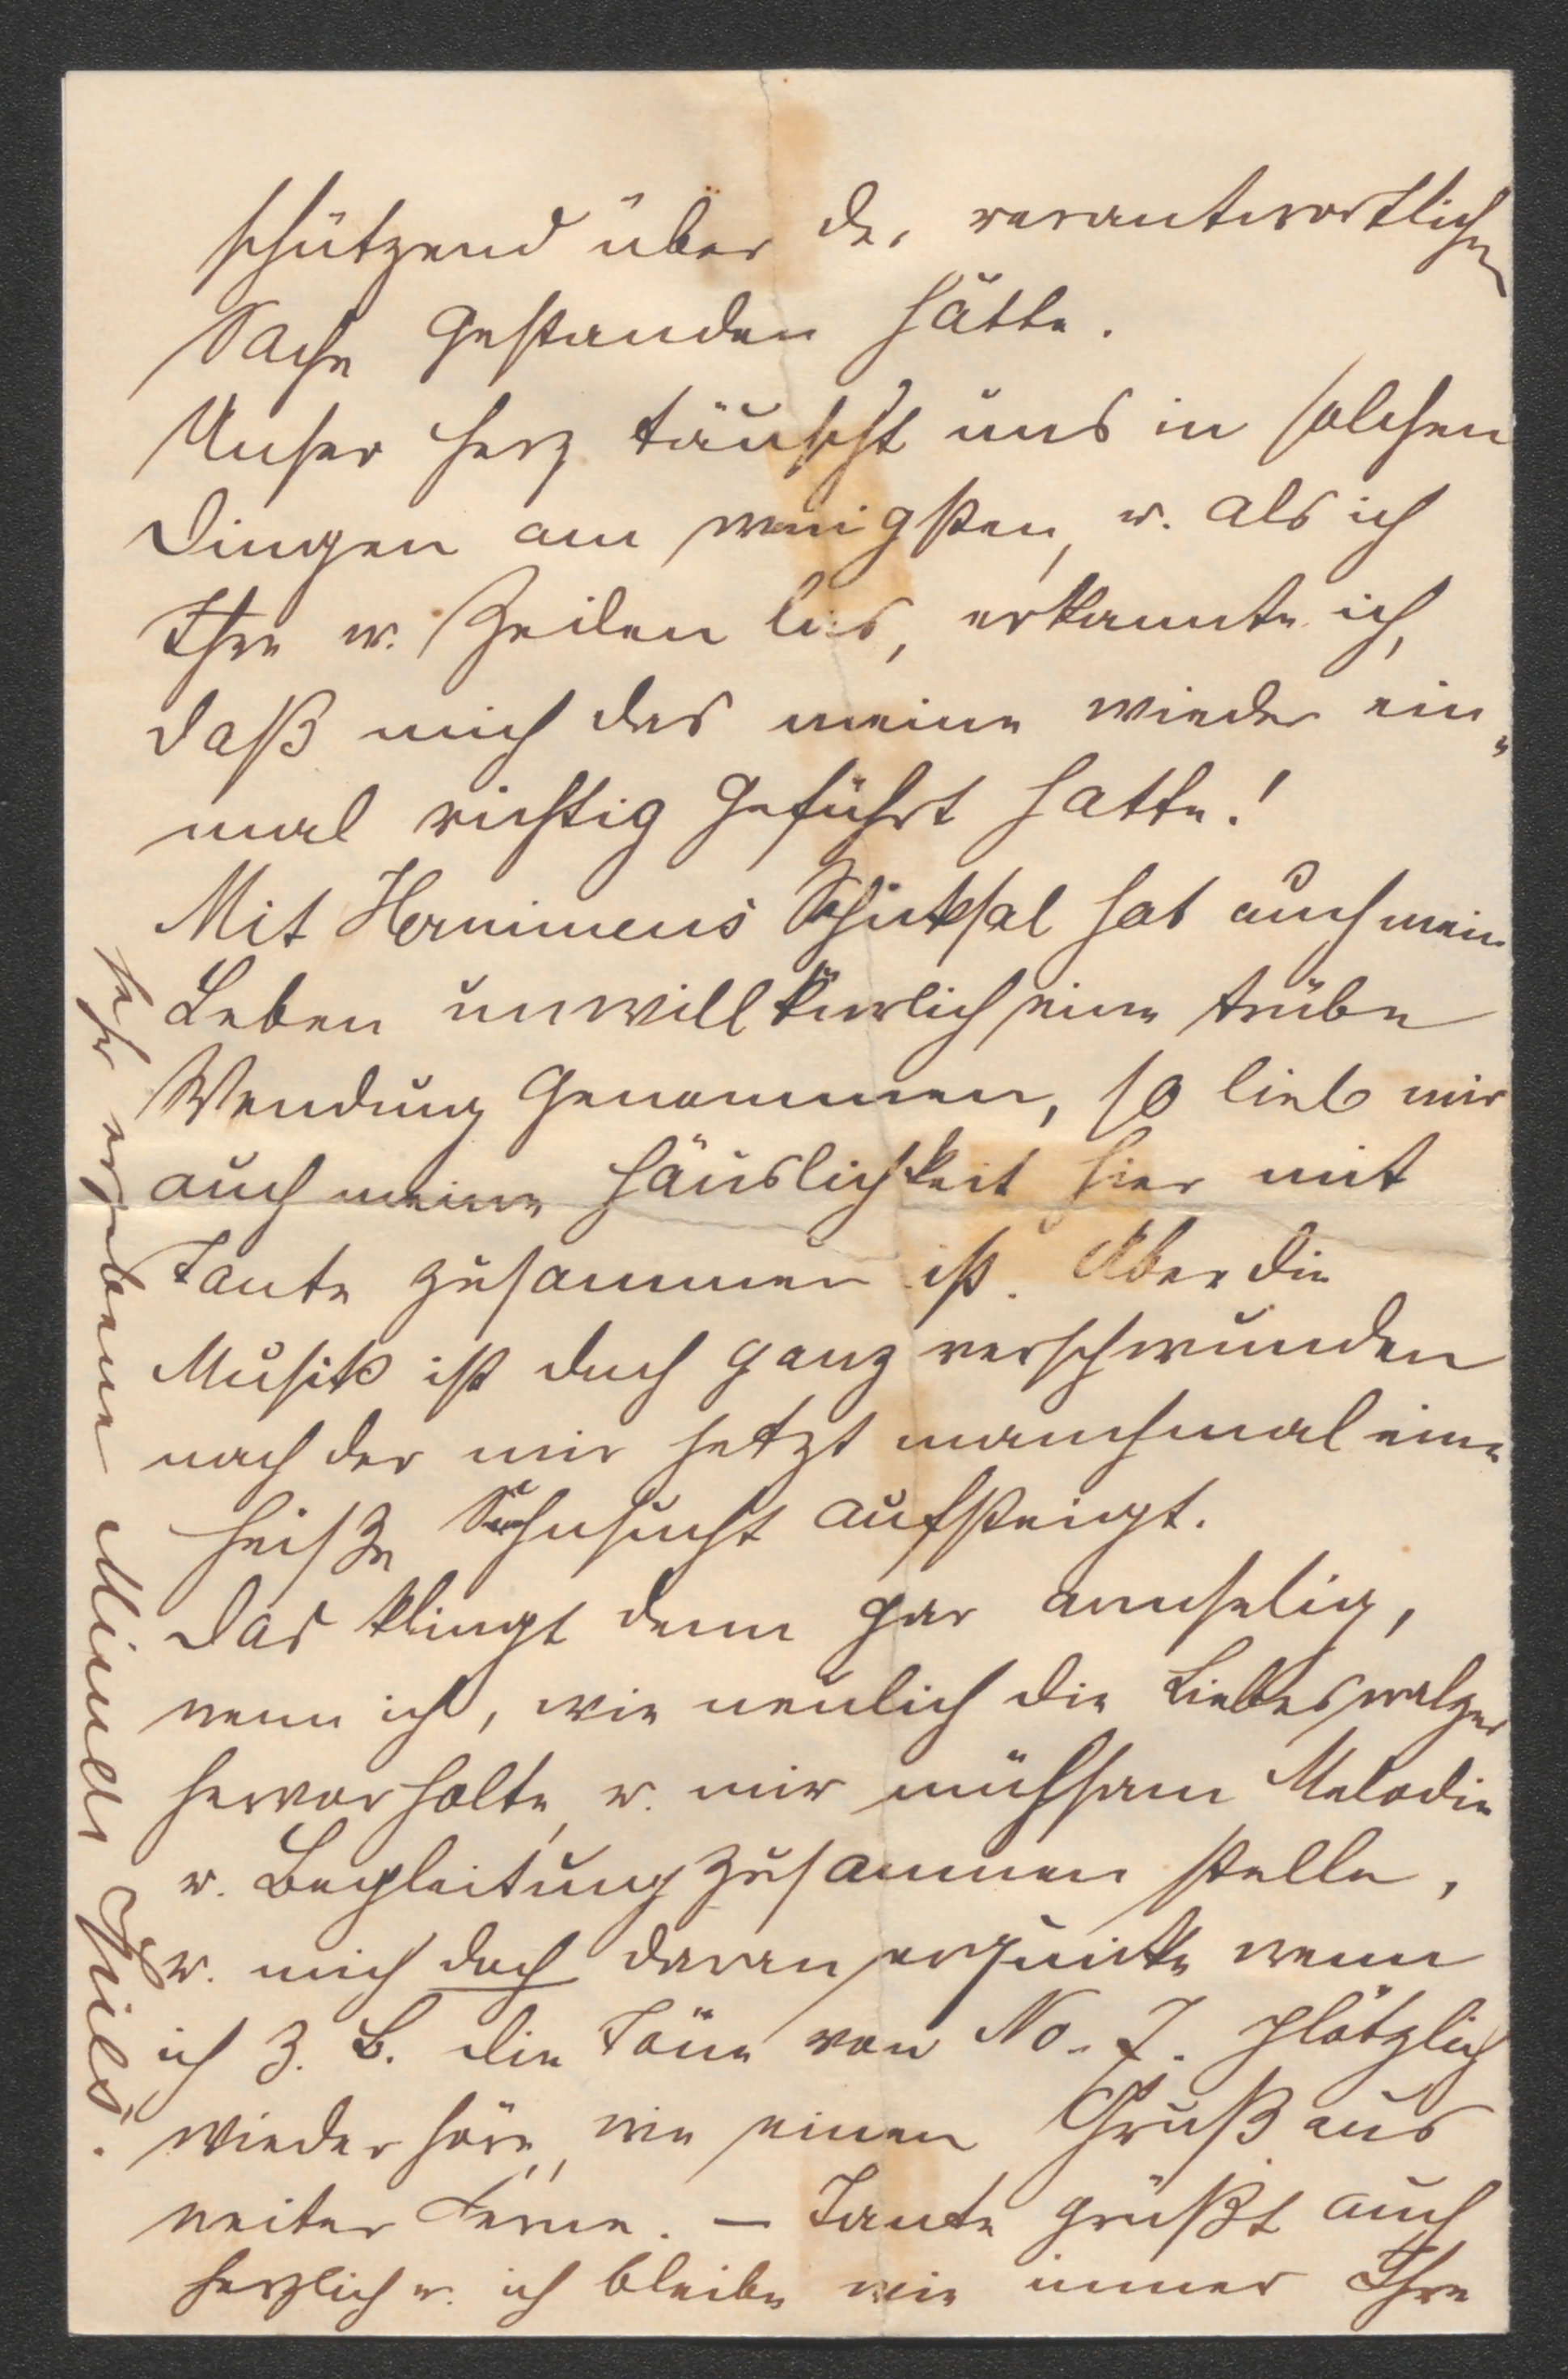 schützend über der verantwortlichen
Sache gestanden hätte.
Unser Herz täuscht uns in solchen
Dingen am wenigsten, u. als ich
Ihre w. Zeilen las, erkannte ich,
daß mich das meine wieder ein-
mal richtig geführt hatte!
Mit Herminens Schicksal hat auch mein
Leben unwillkürlich eine trübe
Wendung genommen, so lieb mir
auch meine Häuslichkeit hier mit
Tante zusammen ist. Aber die
Musik ist doch ganz verschwunden
nach der mir jetzt manchmal eine
heiße Sehnsucht aufsteigt.
Das klingt denn gar armselig,
wenn ich, wie neulich die Liebeswalzer
hervorholte, u. mir mühsam Melodie
u. Begleitung zusammen stelle,
u. mich doch daran erquicke wenn
ich z. B. die Töne von No. 7. plötzlich
wieder höre, wie einen Gruß aus
weiter Ferne. – Tante grüßt auch
herzlich u. ich bleibe wie immer Ihre
sehr ergebene Minna